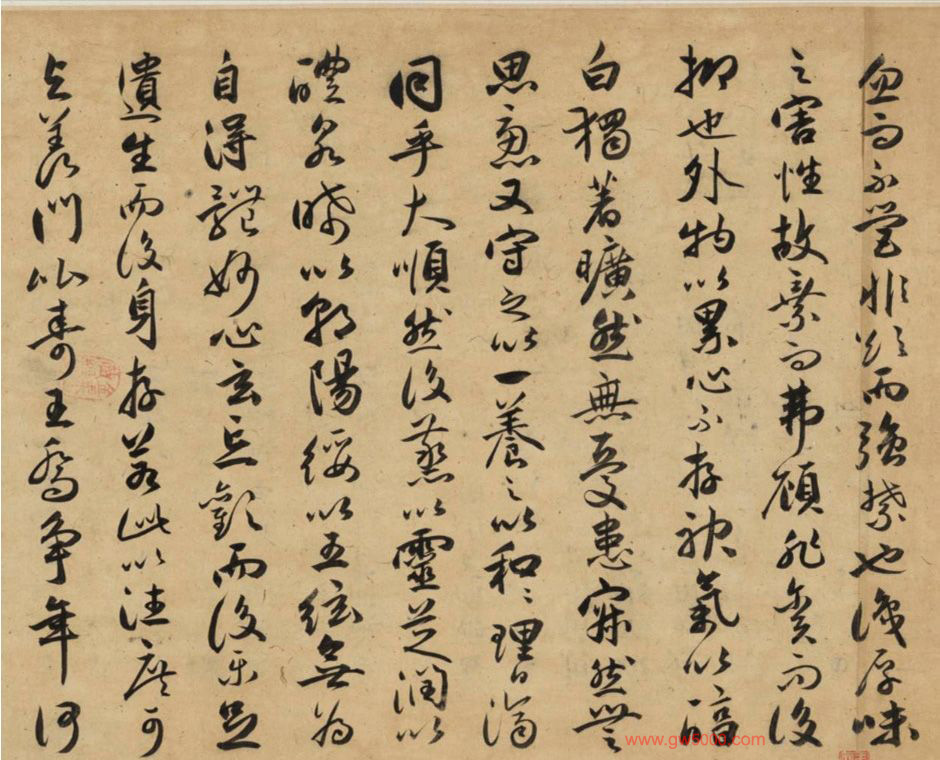 忽而不營非欲而強禁也識厚味
之害性故棄而弗顧非貪而後
抑也外物以累心不存神氣以醇
白獨著曠然無憂患寂然無
思慮又守之以一養之以和々理日濟
同乎大順然後蒸以靈芝潤以
醴泉晞以朝陽綏以五弦無為
自得體妙心玄忘歡而後樂足
遺生而後身存若此以往庶可
與羨門比壽王喬爭年何